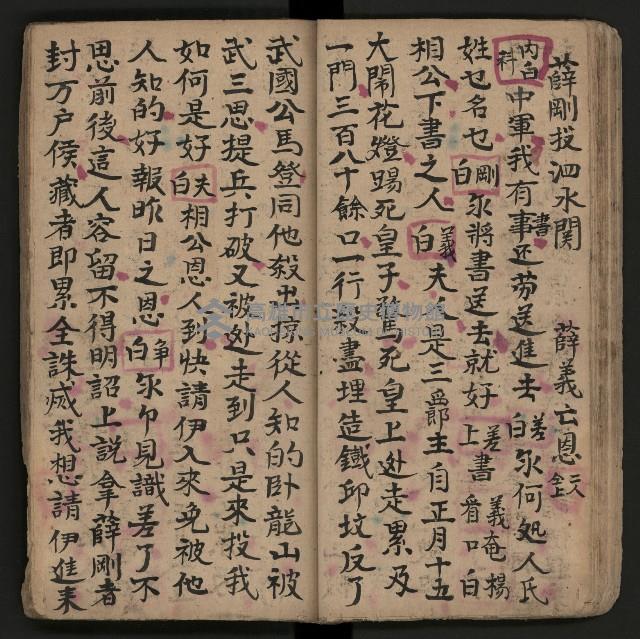 薛剛投泗水関 薛義亡恩
内白 科 中軍我有書事还劳送進去 差白 尔何処人氏
姓乜名乜 剛白 尔將書送去就好 上差書 義奄揚看口白
相公下書之人 義白 夫人是三爵主自正月十五
大鬧花燈踢死皇子驚死皇上处走累及
一門三百八十餘口一行殺盡埋造鐵邱坟反了
武國公馬登同他殺出掠從人知的卧龍山被
武三思提兵打破又被处走到只是來投我
如何是好 夫白 相公恩人到快請伊入來免被他
人知的好報昨日之恩 争白 尔卜見識差了不
思前後這人容留不得明詔上說拿薛剛者
封万户侯藏者即累全誅㓕我想請伊進来
高雄市立歷史博物館
KAOHSIUNG MUSEUM OF HISTORY